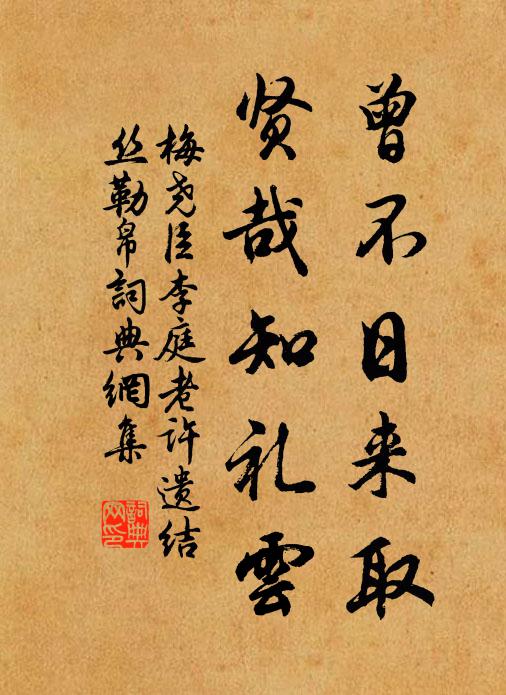 曾不日来取
贤哉知礼雲
梅尧臣李庭老许遗结
丝勒帛詞典網集
詞典
网印